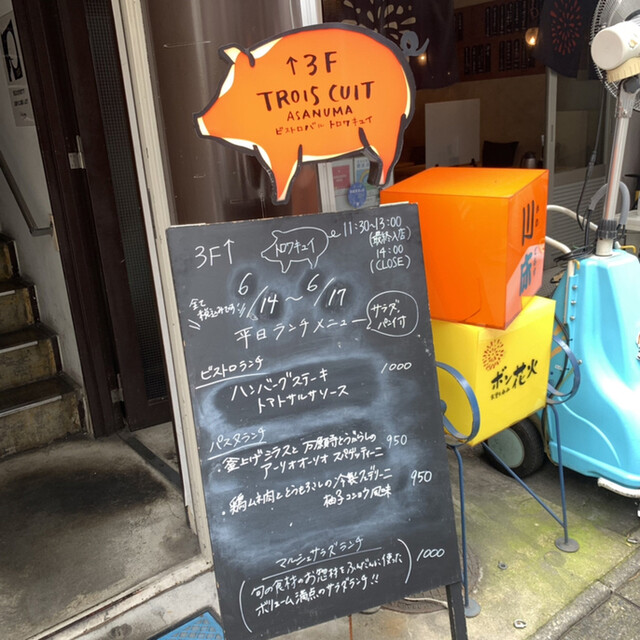 ↑3F
TROIS CUIT
ASANUMA
ビストロバル トロワキュイ
3F↑
トロワキュイ
11:30~13:00
(最終入店)
14:00
(CLOSE)
全て税込みです
6/14~6/17
平日ランチメニュー
サラダ
パン付
ビストロランチ
ハンバーグステーキ 1000
トマトサルサソース
パスタランチ
・釜上げシラスと万願寺とうがらしの 950
アーリオオーリオ スパゲッティーニ
・鶏ムネ肉ととうもろこしの冷製スパゲッティーニ 950
柚子コショウ風味
マルシェサラダランチ
旬の食材のお惣菜をふんだんに使った 1000
ボリューム満点のサラダランチ!!
ポン花火